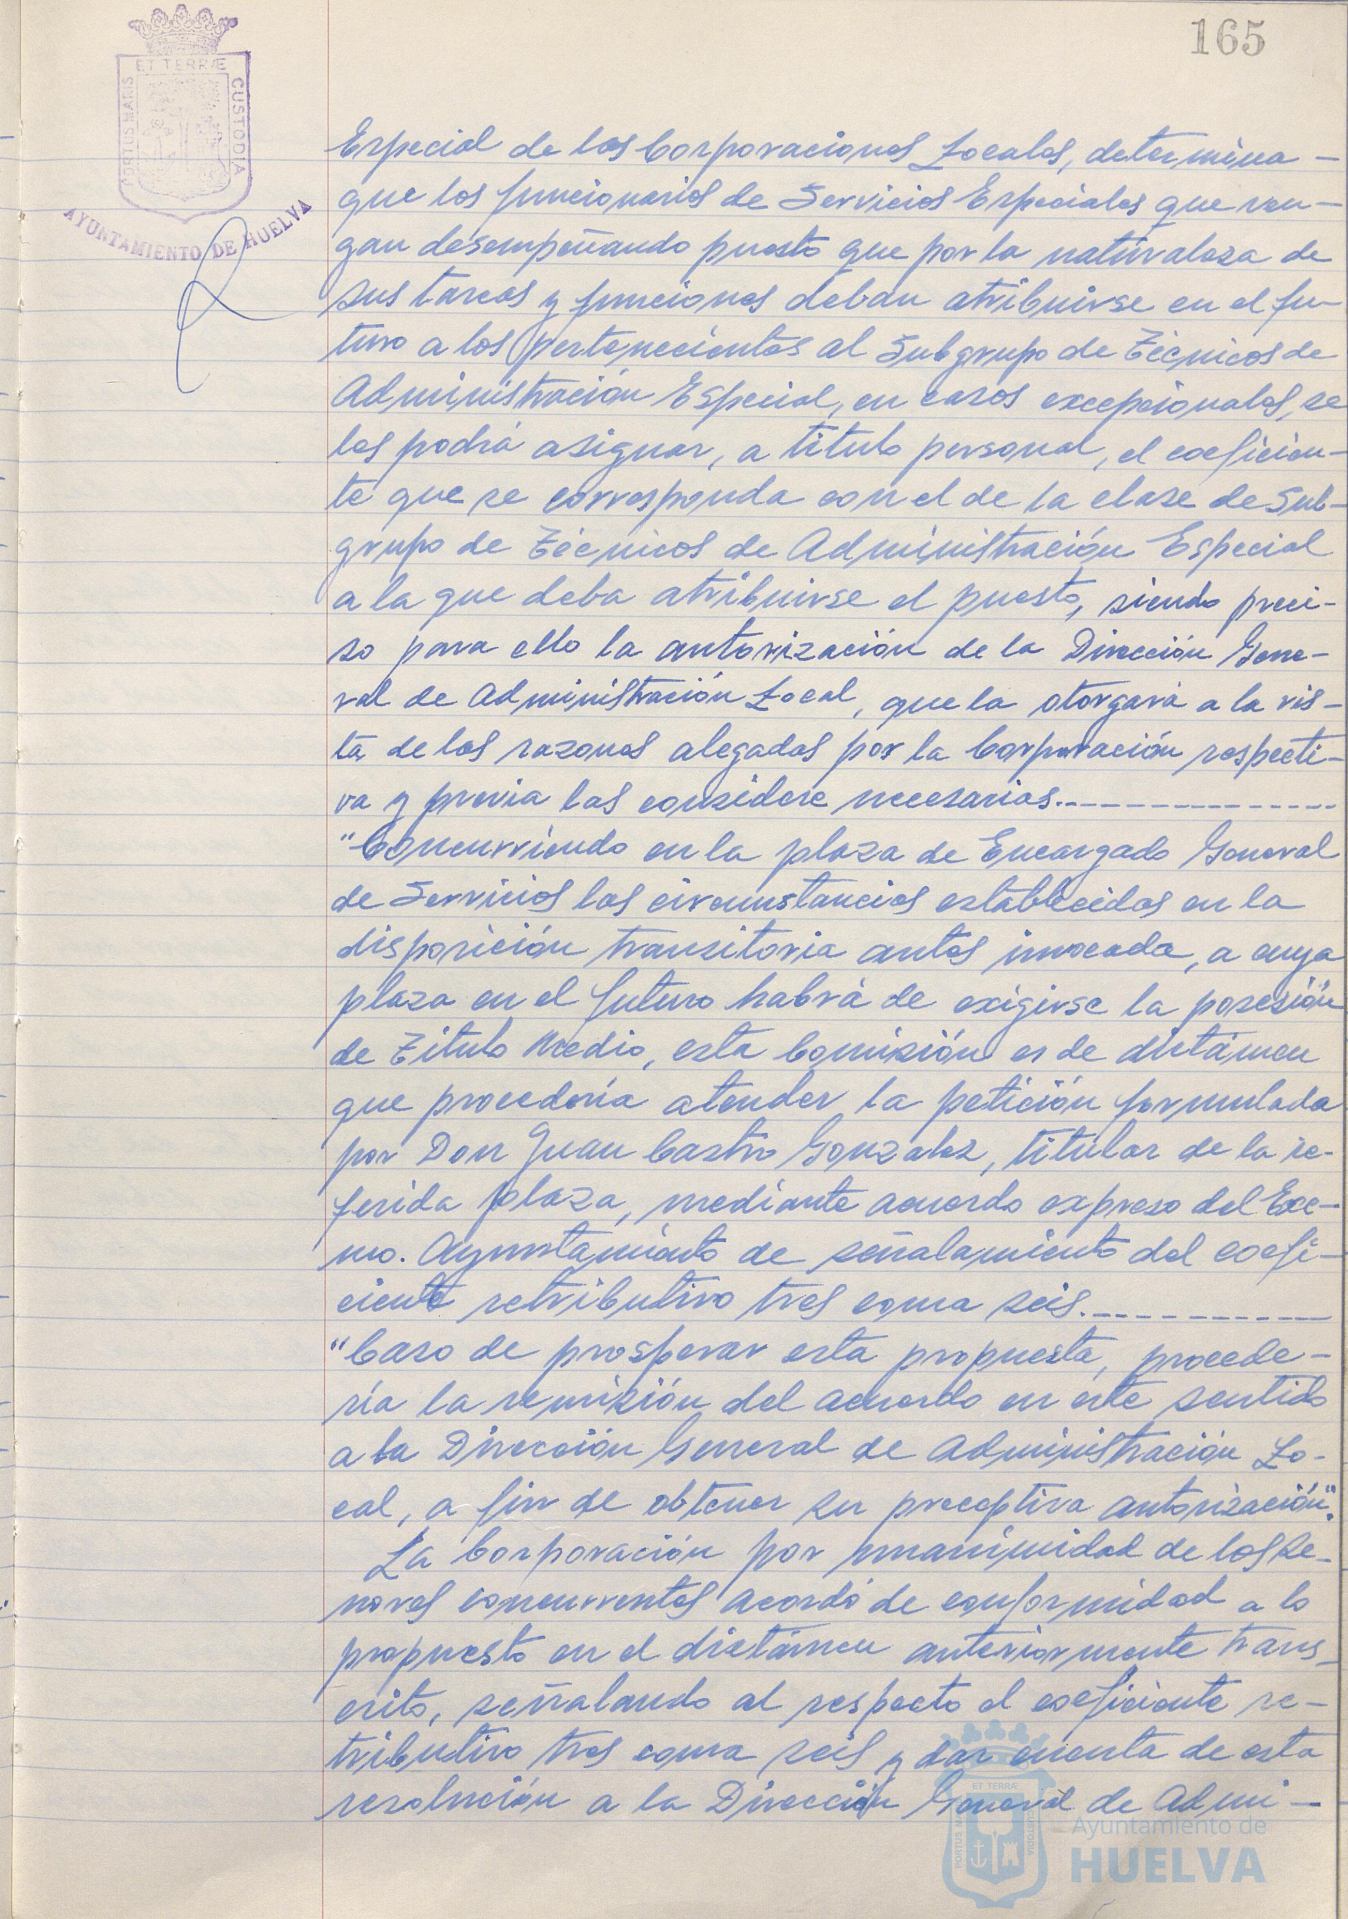 165
ET TERRÆ
PORTUS MARIS
CUSTODIA
AYUNTAMIENTO DE HUELVA
Especial de las Corporaciones Locales, determina -
que los funcionarios de Servicios Especiales que ven-
gan desempeñando puesto que por la naturaleza de
sus tareas y funciones deban atribuirse en el fu-
turo a los pertenecientes al Subgrupo de Técnicos de
Administración Especial, en casos excepcionales, se
les podrá asignar, a título personal, el coeficien-
te que se corresponda con el de la clase de Sub-
grupo de Técnicos de Administración Especial
a la que deba atribuirse el puesto, siendo preci-
so para ello la autorización de la Dirección Gene-
ral de Administración Local, que la otorgará a la vis-
ta de las razones alegadas por la Corporación respecti-
va y previa las considere necesarias.-------------
"Concurriendo en la plaza de Encargado General
de Servicios las circunstancias establecidas en la
disposición transitoria antes invocada, a cuya
plaza en el futuro habrá de exigirse la posesión
de Título Medio, esta Comisión es de dictámen
que procedería atender la petición formulada
por Don Juan Castro Gonzalez, titular de la re-
ferida plaza, mediante acuerdo expreso del Exc-
mo. Ayuntamiento de señalamiento del coefi-
ciente retributivo tres coma seis.-----------
"Caso de prosperar esta propuesta, procede-
ría la remisión del acuerdo en este sentido
a la Dirección General de Administración Lo-
cal, a fin de obtener su preceptiva autorización".
La Corporación por unanimidad de los se-
ñores concurrentes acordó de conformidad a lo
propuesto en el dictámen anteriormente trans-
crito, señalando al respecto el coeficiente re-
tributivo tres coma seis y dar cuenta de esta
resolución a la Dirección General de Admi-
ET TERRÆ
Ayuntamiento de
HUELVA